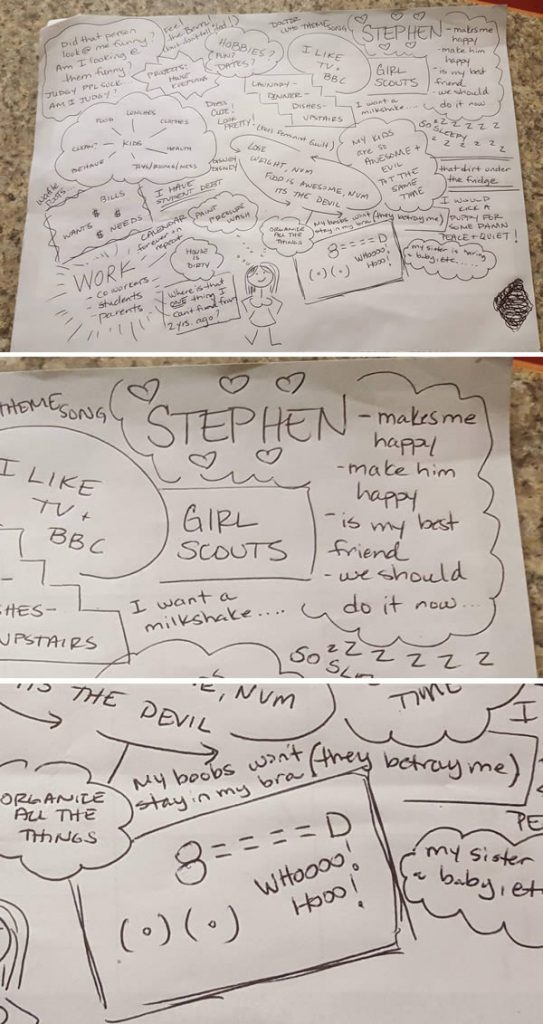 Did that person
look @ me funny?
Am I looking @
them funny?
JUDGY PPL SUCK
AM I JUDGY?
Feel
the Bern!
DOCTOR
WHO THEME SONG
HOBBIES?
FUN?
DATES?
PROJECTS:
I LIKE
TV +
BBC
STEPHEN
- makes me
happy
- make him
happy
- is my best
friend
- we should
do it now...
GIRL
SCOUTS
LAUNDRY-
DINNER-
DISHES-
UPSTAIRS
I want a
milkshake....
SO SLEEPY
Z Z Z Z Z Z
FOOD
LUNCHES
CLOTHES
KIDS
HEALTH
BEHAVIOR
DRESS
CUTE!
LOOK
PRETTY!
DISNEY
DISNEY
(feel feminist guilt)
LOSE
WEIGHT, NVM
FOOD IS AWESOME, NVM
ITS THE DEVIL
MY KIDS
ARE SO
AWESOME +
EVIL
AT THE
SAME
TIME
that dirt under
the fridge
I WOULD
KILL A
PUPPY FOR
SOME DAMN
PEACE + QUIET!
BILLS
$ $
WANTS NEEDS
$
I HAVE
STUDENT DEBT
CALENDAR
forever on
repeat
PAINT
PRESSURE
WASH
ORGANIZE
ALL THE
THINGS
My boobs won't (they betray me)
stay in my bra
8====D
WHOOOO!
HOOO!
(o)(o)
my sister is having
a baby, etc....
HOUSE
IS
DIRTY
WORK
- coworkers
- students
- parents
Where is that
ONE thing I
can't find from
2 yrs. ago?
THEME SONG
STEPHEN
- makes me
happy
- make him
happy
- is my best
friend
- we should
do it now...
I LIKE
TV +
BBC
GIRL
SCOUTS
HES-
UPSTAIRS
I want a
milkshake....
SO
Z Z Z Z Z Z
ITS THE DEVIL
E, NVM
TIME
I
My boobs won't (they betray me)
stay in my bra
ORGANIZE
ALL THE
THINGS
8====D
WHOOOO!
HOOO!
(o)(o)
PE
my sister
a baby, et